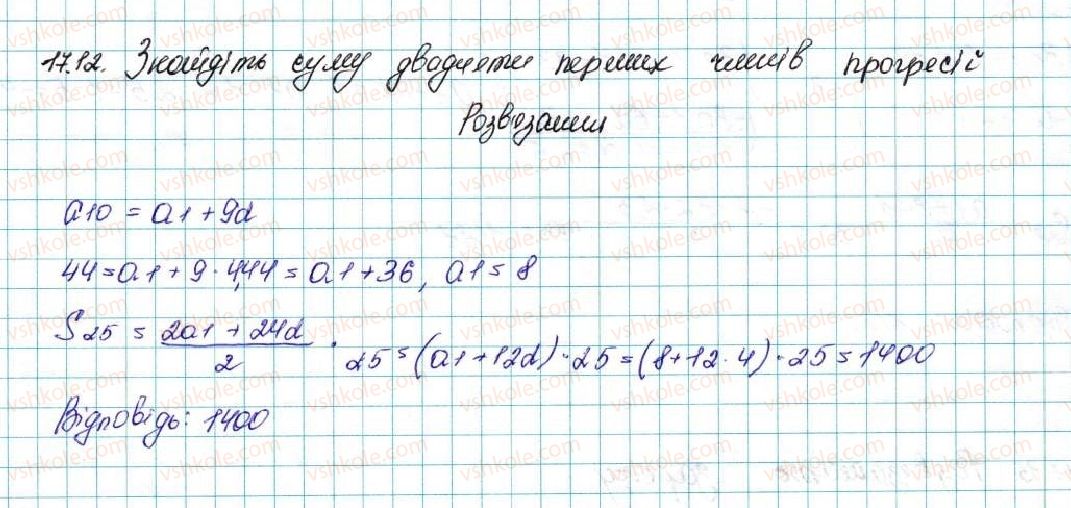 17.12. Знайдіть суму двадцяти перших членів прогресії
Розв'язання
a10 = a1 + 9d
44 = a1 + 9 · 4, 44 = a1 + 36, a1 = 8
S25 = (2a1 + 24d)/2 · 25 = (a1 + 12d) · 25 = (8 + 12 · 4) · 25 = 1400
Відповідь: 1400
vshkole.com